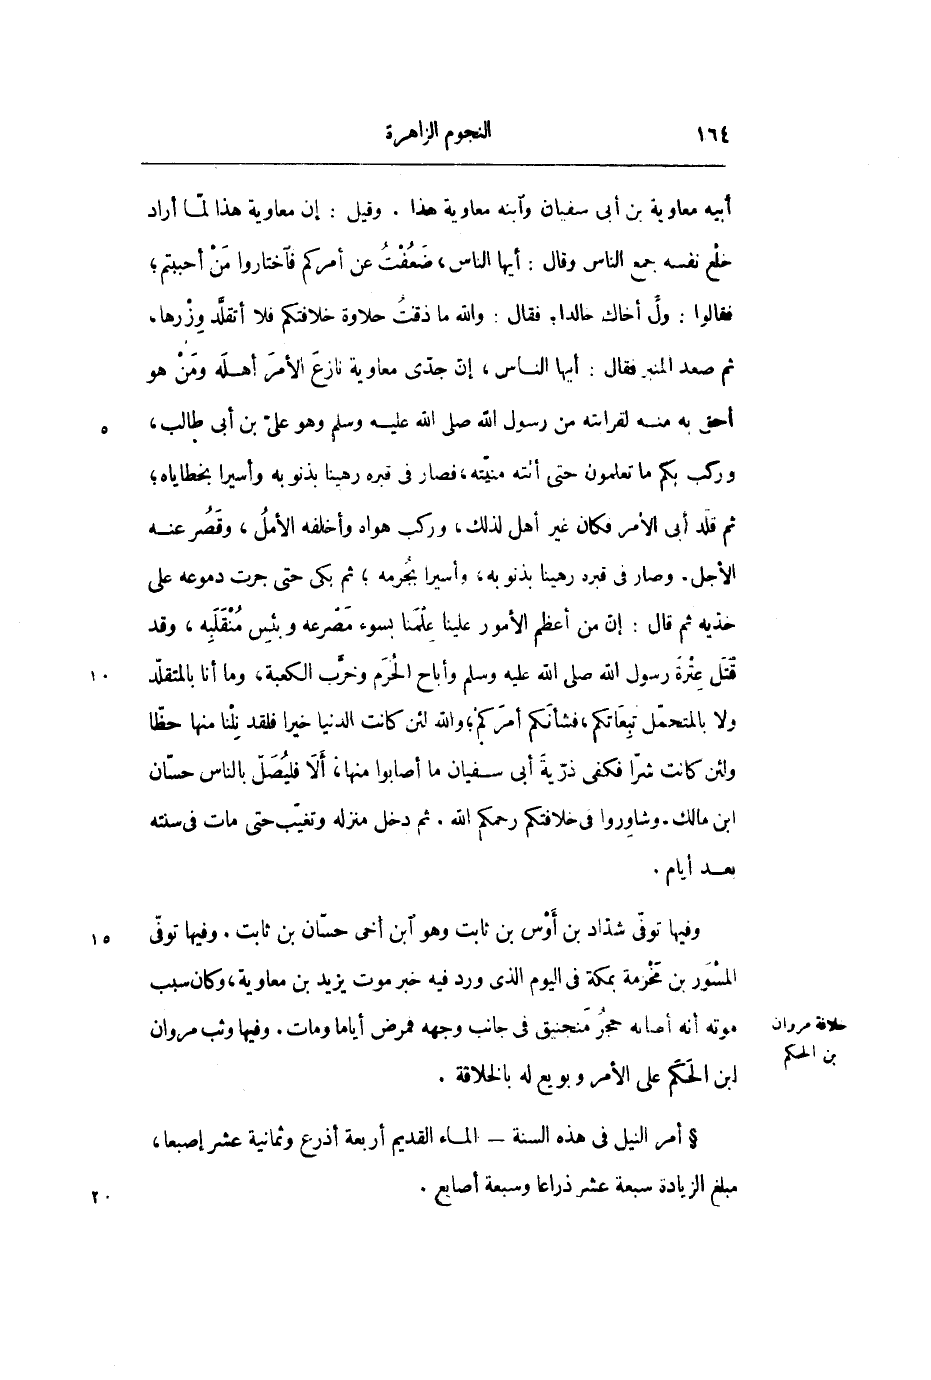 ١٦٤ النجوم الزاهرة
أبيه معاوية بن أبى سفيان وآبنه معاوية هذا . وقيل : إن معاوية هذا لمّا أراد
خلْع نفسه جمع الناس وقال : أيها الناس، ضَعُفْتُ عن أمركم فآختاروا مَنْ أحببتم؛
فقالوا : ولِّ أخاك خالدا. فقال : والله ما ذقتُ حلاوة خلافتكم فلا أتقلَّد وِزْرها.
ثم صعد المنبر فقال : أيها النـاس، إن جدّى معاوية نازعَ الأمرَ أهـلَه ومَنْ هو
أحق به منـه لقرابته من رسول الله صلى الله عليـه وسلم وهو علىّ بن أبى طالب،
٥
وركب بكم ما تعلمون حتى أتته منيّته، فصار فى قبره رهينا بذنوبه وأسيرا بخطاياه؛
ثم قلّد أبى الأمر فكان غير أهل لذلك، وركب هواه وأخلفه الأملُ، وقَصُر عنـه
الأجل. وصار فى قبره رهينا بذنوبه، وأسيرا بجُرمه ؛ ثم بكى حتى جرت دموعه على
خدّيه ثم قال : إن من أعظم الأمور علينا عِلْمَنا بسوء مَصْرعه وبئيس مُنْقَلَبه ، وقد
قَتَل عِتْرةَ رسول الله صلى الله عليه وسلم وأباح الحُرَم وخرَّب الكعبة، وما أنا بالمتقلّد
١٠
ولا بالمتحمّل تَبِعَاتكم، فشأنَكم أمرَكم؛ والله لئن كانت الدنيا خيرا فلقد نِلْنا منها حظّا
ولئن كانت شرّا فكفى ذرّيةَ أبى سـفيان ما أصابوا منها، أَلَا فليُصَلّ بالناس حسّان
ابن مالك. وشاوروا فى خلافتكم رحمكم الله . ثم دخل منزله وتغيّب حتى مات فى سنته
بعـد أيام .
وفيها توفّى شدّاد بن أَوْس بن ثابت وهو آبن أخى حسّان بن ثابت . وفيها توفّى
١٥
المِسْوَر بن مَخْرمة بمكة فى اليوم الذى ورد فيه خبر موت يزيد بن معاوية، وكان سبب
موته أنه أصابه حجرُ مَنجنيق فى جانب وجهه فمرض أياما ومات. وفيها وثب مروان
خلافة مروان
بن الحكم
ابن الحَكَم على الأمر وبويع له بالخلافة .
§ أمر النيل فى هذه السنة — المـاء القديم أربعة أذرع وثمانية عشر إصبعا،
مبلغ الزيادة سبعة عشر ذراعا وسبعة أصابع .
٢٠